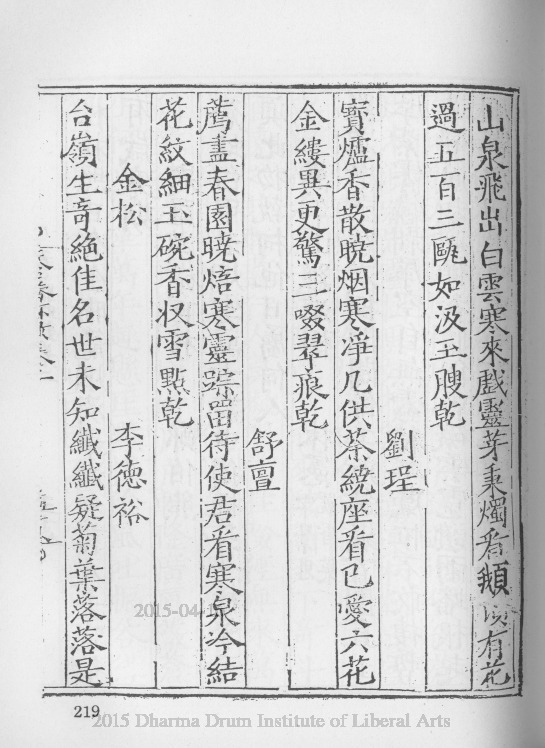 山泉飛出白雲寒來戲靈芽秉燭看頼以有花
過五百三甌如汲玉膄乾
劉珵
寳爐香散曉烟寒凈几供茶繞座看已愛六花
金縷異更驚一啜翠痕乾
舒亶
薦盡春園曉焙寒靈踪留待使君看寒泉冷結
花紋細玉碗香収雪點乾
金松
李德裕
台嶺生奇絶佳名世未知纖纖疑菊葉落落是
219
2015-04-
2015 Dharma Drum Institute of Liberal Arts